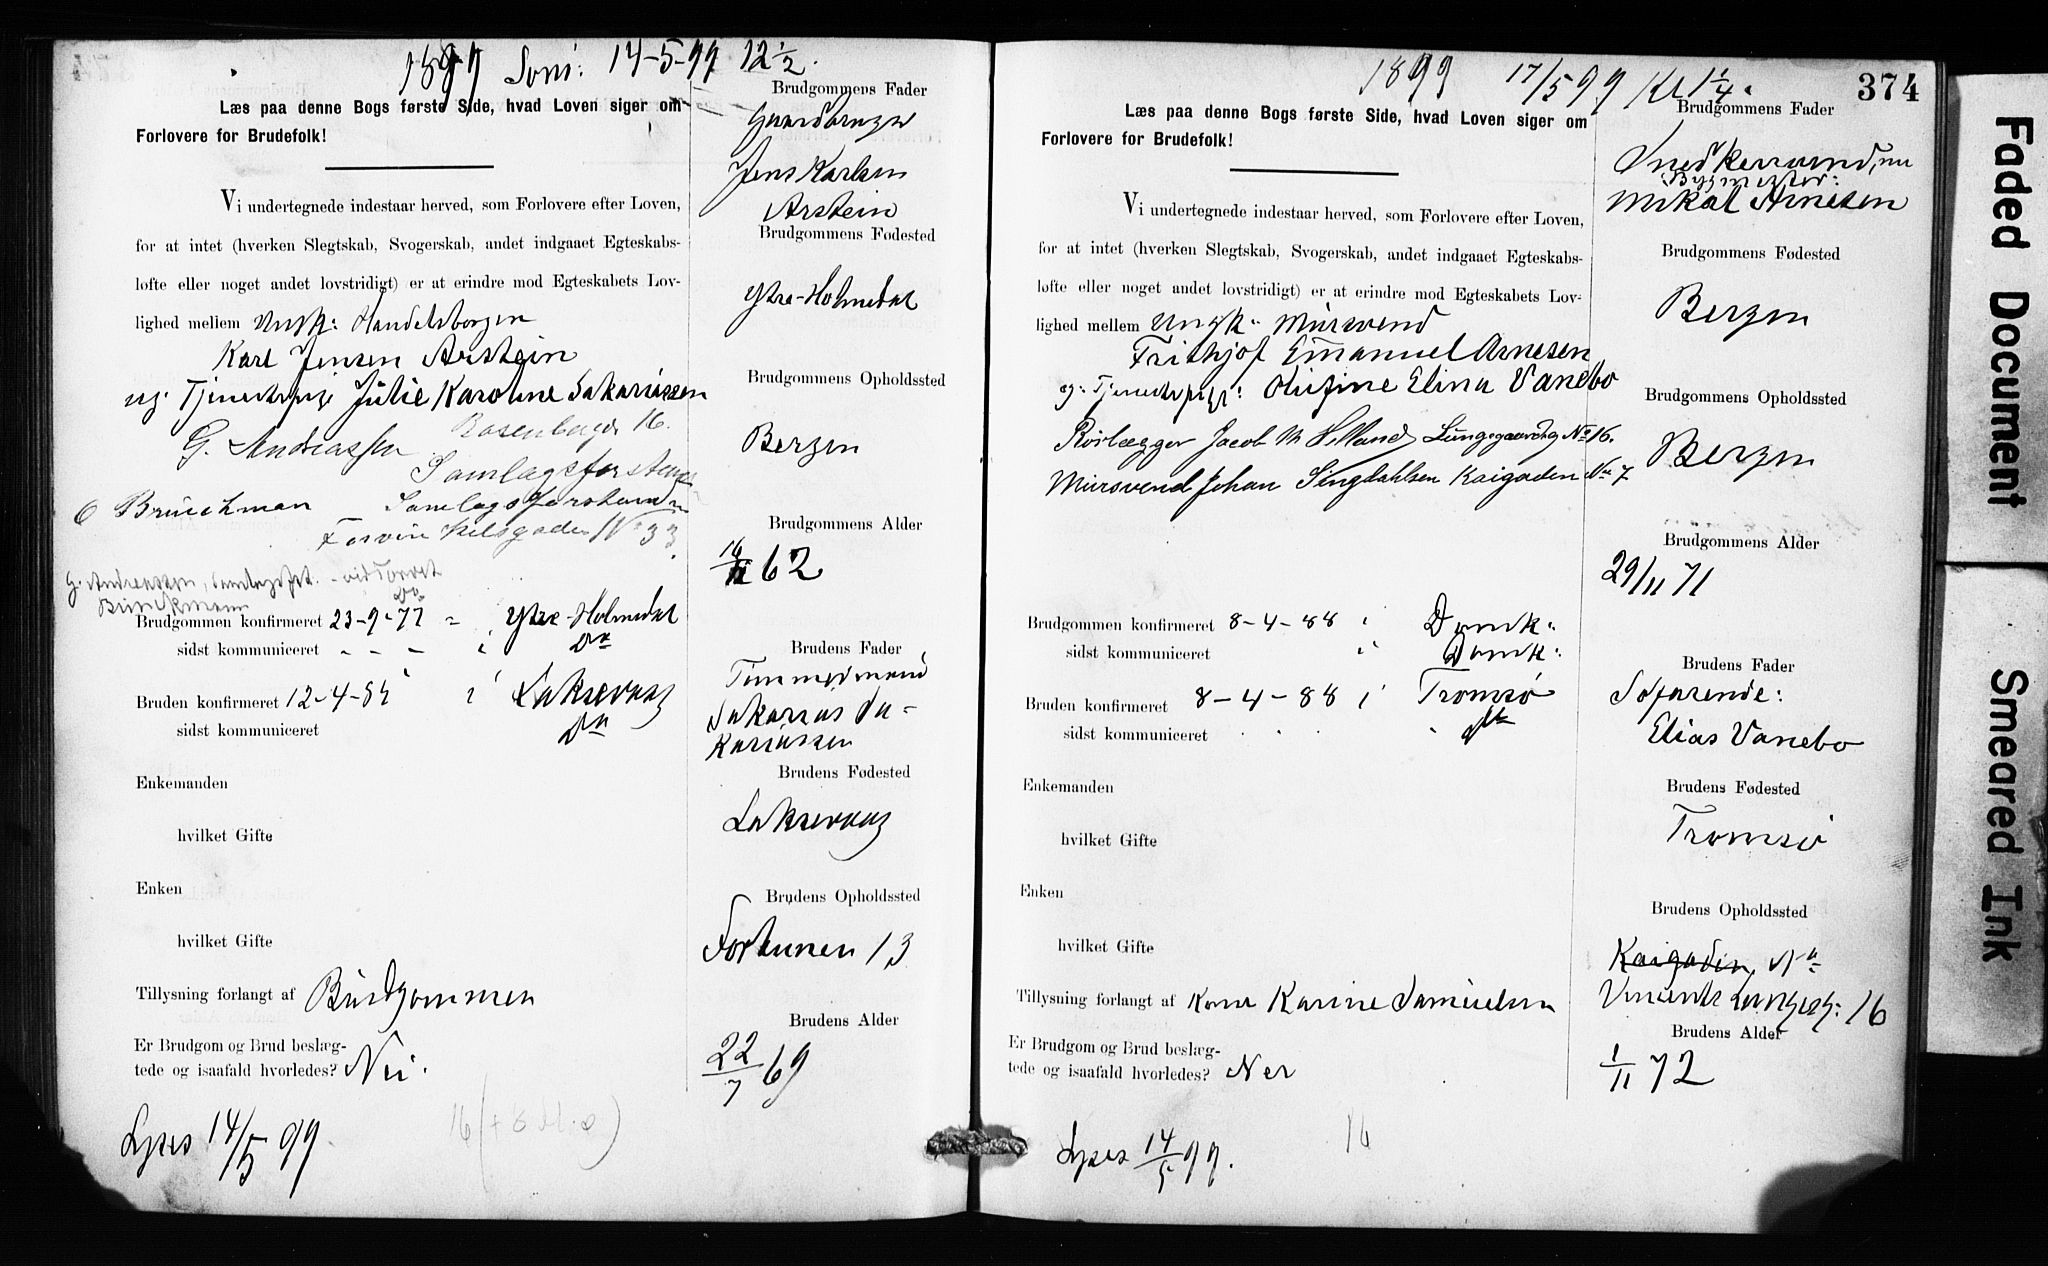 1899 14-5-99 12 1/2.
Læs paa denne Bogs første Side, hvad Loven siger om
Forlovere for Brudefolk!
Vi undertegnede indestaar herved, som Forlovere efter Loven,
for at intet (hverken Slegtskab, Svogerskab, andet indgaaet Egteskabs-
løfte eller noget andet lovstridigt) er at erindre mod Egteskabets Lov-
lighed mellem Ungk: Handelsborger
Karl Jensen Arstein
og: Tjenestepige Julie Karoline Sakariassen
G. Andreassen Rosenberggd 16.
Samlagsforstander
Brinchman Samlagsforstander
No 33
G. Andreassen, Samlagsfst. - vid Torvet
Brinckmann Do
Brudgommen konfirmeret 23-9-77 - Ytre-Holmedal
sidst kommuniceret - - - i Do
Bruden konfirmeret 12-4-85 i Laksevaag
sidst kommuniceret Do
Enkemanden
hvilket Gifte
Enken
hvilket Gifte
Tillysning forlangt af Brudgommen
Er Brudgom og Brud beslæg-
tede og isaafald hvorledes? Nei.
Lyses 14/5 99.
Brudgommens Fader
Gaardbruger
Jens Karlsen
Arstein
Brudgommens Fødested
Ytre-Holmedal
Brudgommens Opholdssted
Bergen
Brudgommens Alder
62
Brudens Fader
Tømmermand
Sakarias Sa-
kariassen
Brudens Fødested
Laksevaag
Brudens Opholdssted
Fortunen 13
Brudens Alder
22/7 69
1899 17/5 99 Kl 1 1/4.
374
Læs paa denne Bogs første Side, hvad Loven siger om
Forlovere for Brudefolk!
Vi undertegnede indestaar herved, som Forlovere efter Loven,
for at intet (hverken Slegtskab, Svogerskab, andet indgaaet Egteskabs-
løfte eller noget andet lovstridigt) er at erindre mod Egteskabets Lov-
lighed mellem Ungk: Mursvend
Frithjof Emanuel Arnesen
og: Tjenestepige: Olufine Elina Vanebo
Rørlægger Jacob M Helland Lungegaardsg No 16.
Mursvend Johan Singdahlsen Kaigaden No 7
Brudgommen konfirmeret 8-4-88 i Domk:
sidst kommuniceret i Domk:
Bruden konfirmeret 8-4-88 i Tromsø
sidst kommuniceret Do
Enkemanden
hvilket Gifte
Enken
hvilket Gifte
Tillysning forlangt af Kone Karine Samuelsen
Er Brudgom og Brud beslæg-
tede og isaafald hvorledes? Nei
Lyses 14/5 99.
16
Brudgommens Fader
Snedkersvend, nu
Bygmester:
Mikal Arnesen
Brudgommens Fødested
Bergen
Brudgommens Opholdssted
Bergen
Brudgommens Alder
29/11 71
Brudens Fader
Søfarende:
Elias Vanebo
Brudens Fødested
Tromsø
Brudens Opholdssted
Kaigaden, No
Vincents Lungesg: 16
Brudens Alder
1/11 72
Faded Document
Smeared Ink